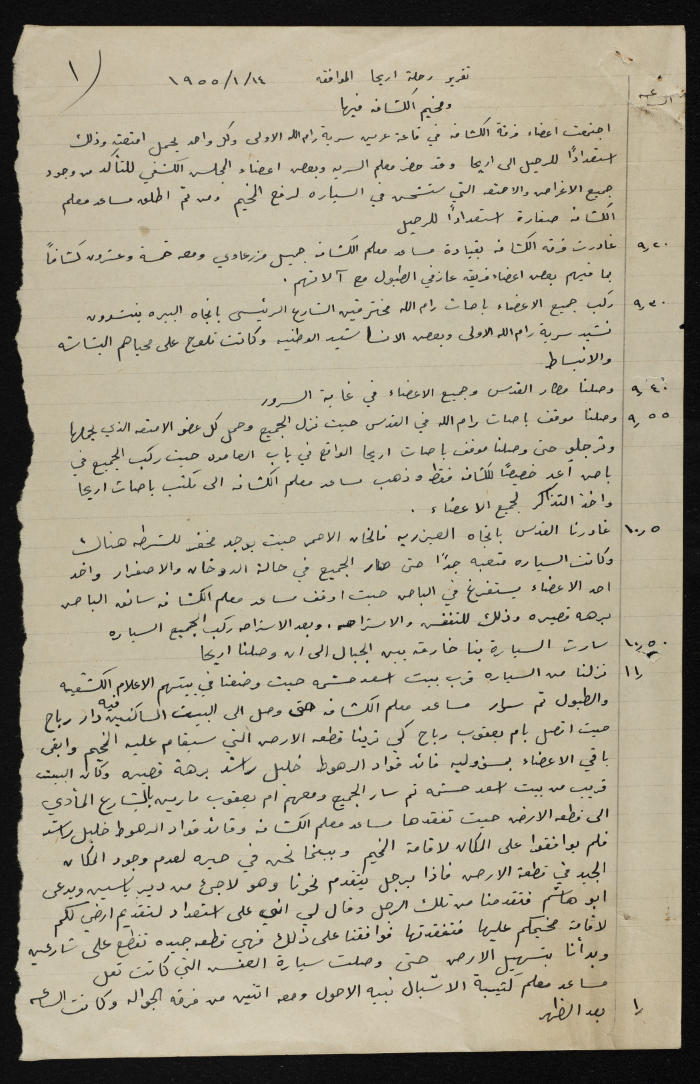 ١
تقرير رحلة اريحا الموافقه ١٤/١/١٩٥٥
ومخيم الكشافه فيها
الساعه
اجتمعت اعضاء فرقة الكشافه في قاعة عرين سرية رام الله الاولى وكل واحد يحمل امتعته وذلك
استعدادًا للرحيل الى اريحا وقد حضر معلم السريه وبعض اعضاء المجلس الكشفي للتأكد من وجود
جميع الاغراض والامتعه التي ستشحن في السياره لرفع المخيم ومن ثم اطلق مساعد معلم
الكشافه صفارة استعدادًا للرحيل
٩٫٢٠ غادرت فرقه الكشافه بقيادة مساعد معلم الكشافه جميل ومعه خمسة وعشرون كشافاً
بما فيهم بعض اعضاء فريقه عازفي الطبول مع آلاتهم .
٩٫٣٠ ركب جميع الاعضاء باصات رام الله مخترقين الشارع الرئيسى باتجاه البيره ينشدون
نشيد سرية رام الله الاولى وبعض الاناشيد الوطنيه وكانت تلوح على محياهم البشاشه
والانبساط
٩٫٤٠ وصلنا مطار القدس وجميع الاعضاء في غاية السرور
٩٫٥٥ وصلنا موقف باصات رام الله في القدس حيث نزل الجميع وحمل كل عضو الامتعه الذي يحملها
وترجلو حتى وصلنا موقف باصات اريحا الواقع في باب العاموده حيث ركب الجميع في
باص أعد خصيصًا للكشافه فقط وذهب مساعد معلم الكشافه الى مكتب باصات اريحا
واخذ التذاكر لجميع الاعضاء .
١٠٫٥ غادرنا القدس باتجاه العيزريه فالخان الاحمر حيث يوجد مخفر للشرطه هناك
وكانت السياره متعبه جدًا حتى صار الجميع في حالة الدوخان والاصفرار واخذ
احد الاعضاء يستفرغ في الباص حيث اوقف مساعد معلم الكشافه سائق الباص
برهه قصيره وذلك للتنفس والاستراحه . وبعد الاستراحه ركب الجميع السياره
١٠٫٥٠ سارت السيارة بنا خارقه بين الجبال الى ان وصلنا اريحا
١١٫ نزلنا من السياره قرب بيت اسعد حشمه حيث وضعنا في بيتهم الاعلام الكشفيه
والطبول ثم سار مساعد معلم الكشافه حتى وصل الى البيت الساكنين فيه دار رباح
حيث اتصل بام يعقوب رباح كي ترينا قطعه الارض التي سيقام عليه المخيم وابقى
باقي الاعضاء بمسؤوليه قائد قواد الرهوط خليل راشد برهة قصيره وكان البيت
قريب من بيت اسعد حشمه ثم سار الجميع ومعهم ام يعقوب مارين بالشارع المأدي
الى قطعه الارض حيث تفقدها مساعد معلم الكشافه وقائد قواد الرهوط خليل راشد
فلم يوافقوا على المكان لاقامة المخيم وبينما نحن في حيره لعدم وجود المكان
الجيد في قطعة الارض فاذا برجل يتقدم نحونا وهو لاجئ من دير ياسين ويدعى
ابو هاشم فتقدمنا من تلك الرجل وقال لي انى على استعداد لتقديم ارضي لكم
لاقامة مخيمكم عليها فتفقدتها فوافقنا على ذلك فهي قطعه جيده تقطع على شارعين
وبدأنا بتسهيل الارض حتى وصلت سيارة العفش التي كانت تقل
مساعد معلم كتيبة الاشبال نبيه الاحول ومعه اثنين من فرقه الجواله وكانت الساعه
١٫ بعد الظهر